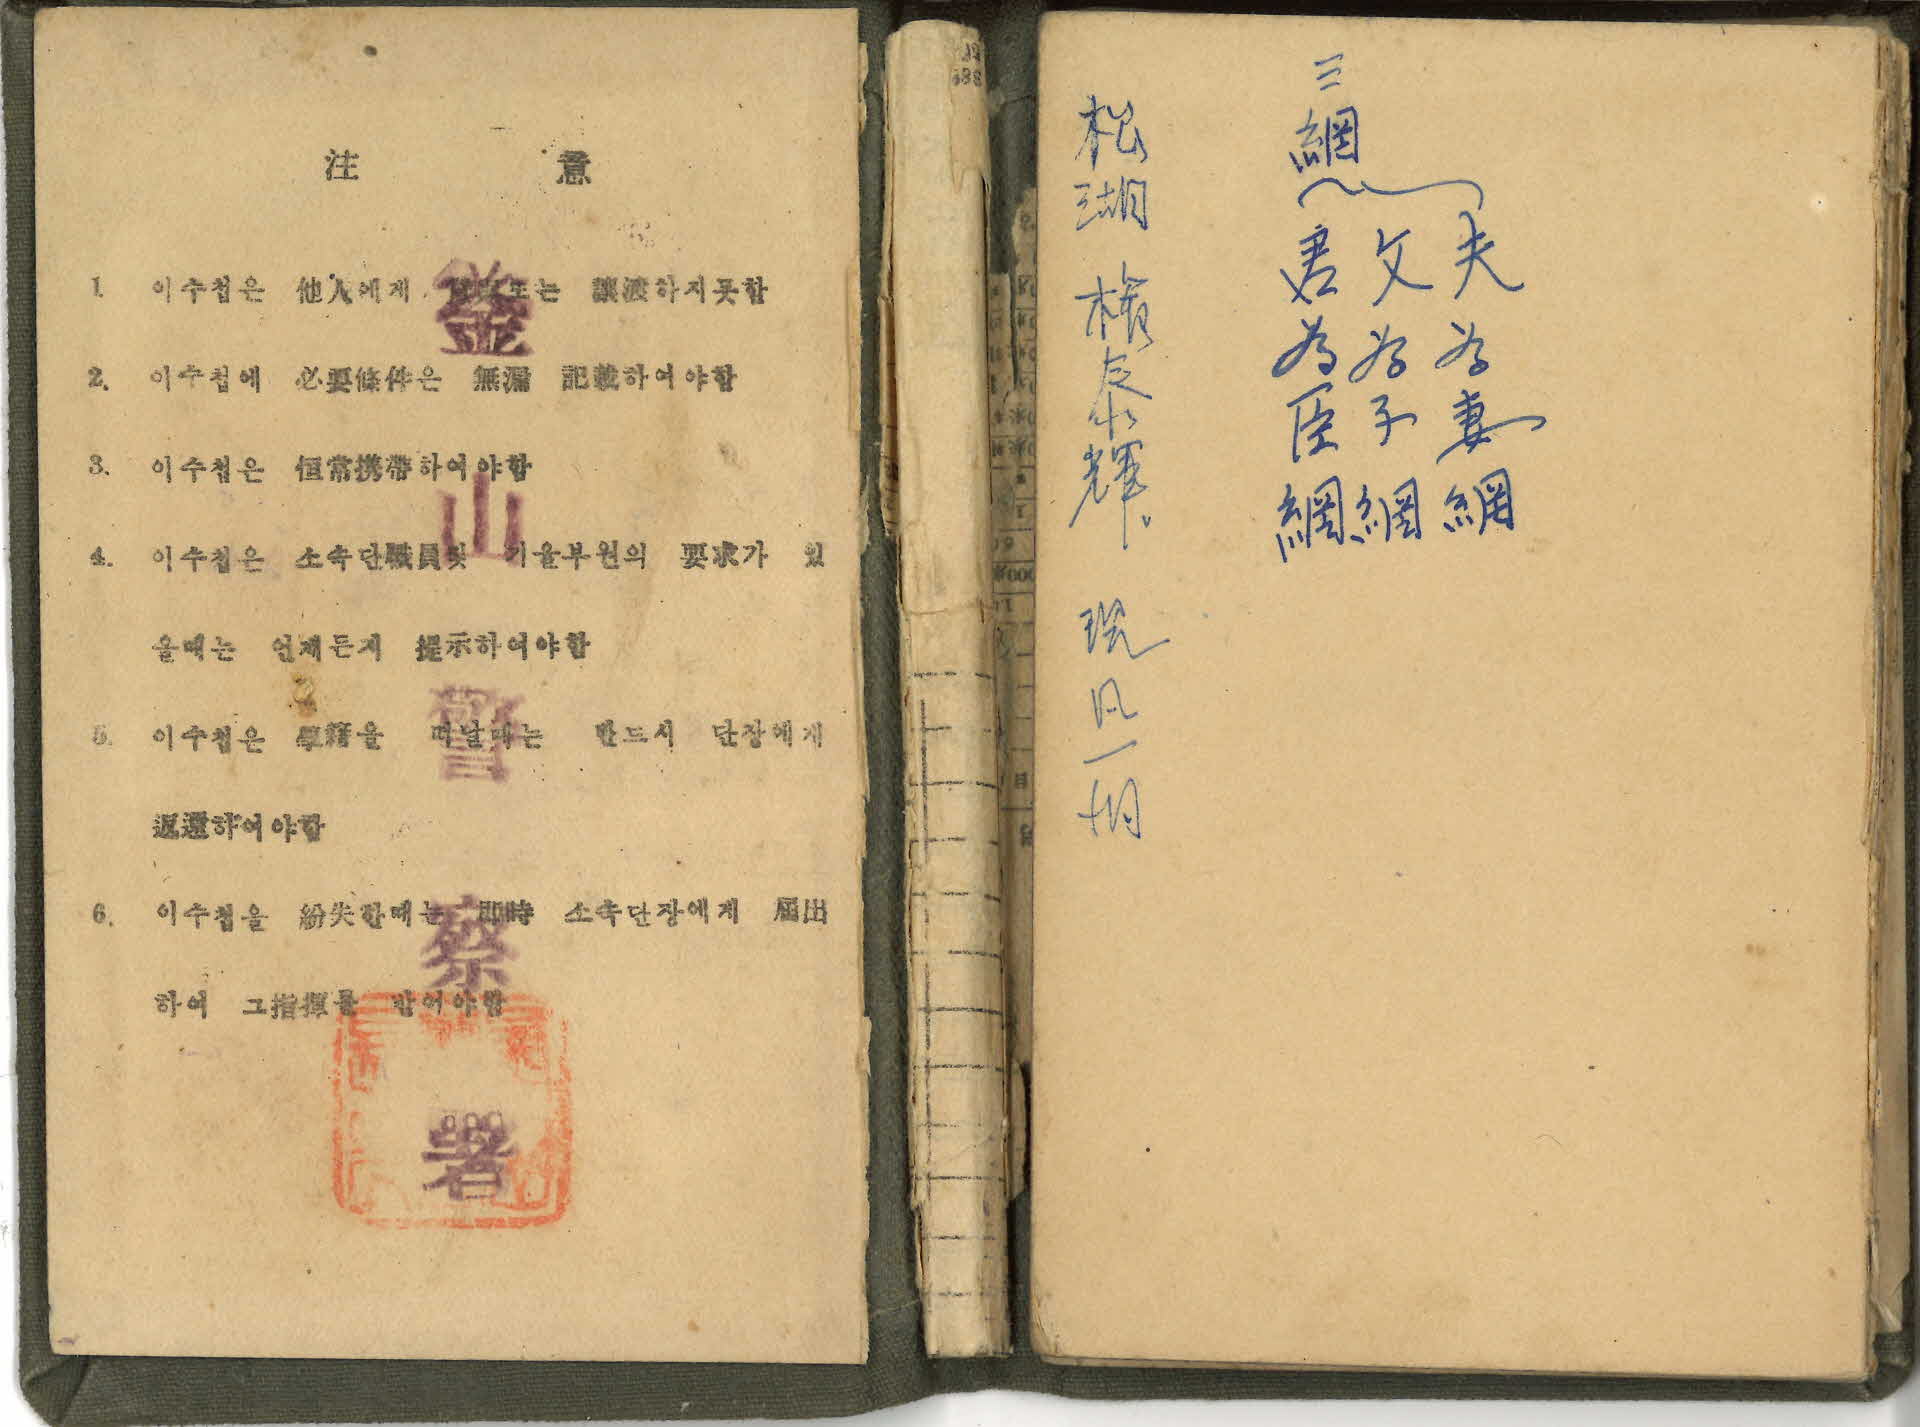 注 意
1. 이수첩은 他人에게 또는 讓渡하지못함
2. 이수첩에 必要條件은 無漏 記載하여야함
3. 이수첩은 恒常携帶하여야함
4. 이수첩은 소속단職員및 기율부원의 要求가 있
을때는 언제든지 提示하여야함
5. 이수첩은 學籍을 떠날때는 반드시 단장에게
返還하여야함
6. 이수첩을 紛失한때는 即時 소속단장에게 屆出
하여 그指揮를 받어야함
釜山警察署
三網
夫为妻網
父为子網
君為臣網
松湖
泰輝